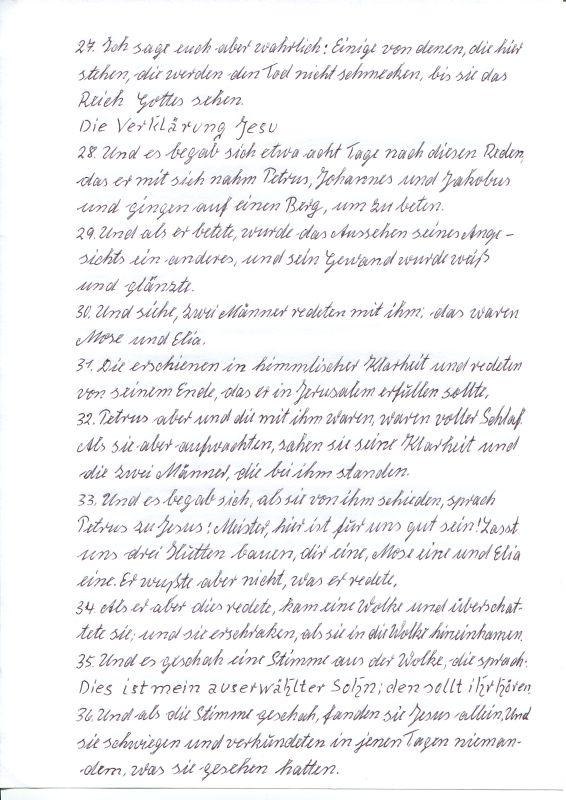 27. Ich sage euch aber wahrlich: Einige von denen, die hier
stehen, die werden den Tod nicht schmecken, bis sie das
Reich Gottes sehen.
Die Verklärung Jesu
28. Und es begab sich etwa acht Tage nach diesen Reden,
das er mit sich nahm Petrus, Johannes und Jakobus
und gingen auf einen Berg, um zu beten.
29. Und als er betete, wurde das Aussehen seines Ange-
sichts ein anderes, und sein Gewand wurde weiß
und glänzte.
30. Und siehe, zwei Männer redeten mit ihm; das waren
Mose und Elia.
31. Die erschienen in himmlischer Klarheit und redeten
von seinem Ende, das er in Jerusalem erfüllen sollte,
32. Petrus aber und die mit ihm waren, waren voller Schlaf.
Als sie aber aufwachten, sahen sie seine Klarheit und
die zwei Männer, die bei ihm standen.
33. Und es begab sich, als sie von ihm schieden, sprach
Petrus zu Jesus: Meister, hier ist für uns gut sein! Lasst
uns drei Hütten bauen, dir eine, Mose eine und Elia
eine. Er wußte aber nicht, was er redete,
34. Als er aber dies redete, kam eine Wolke und überschat-
tete sie; und sie erschraken, als sie in die Wolke hineinkamen.
35. Und es geschah eine Stimme aus der Wolke, die sprach:
Dies ist mein auserwählter Sohn; den sollt ihr hören.
36. Und als die Stimme geschah, fanden sie Jesus allein. Und
sie schwiegen und verkündeten in jenen Tagen nieman-
dem, was sie gesehen hatten.